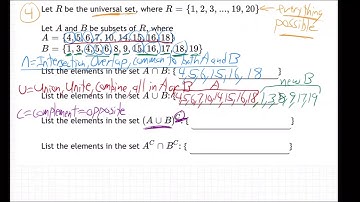 4 Let R be the universal set, where R = {1, 2, 3, ..., 19, 20} ← everything possible
Let A and B be subsets of R, where
A = {4, 5, 6, 7, 10, 14, 15, 16, 18}
B = {1, 3, 4, 5, 6, 8, 9, 15, 16, 17, 18, 19}
∩ = Intersection, Overlap, common to both A and B
List the elements in the set A ∩ B: { 4, 5, 6, 15, 16, 18 }
U = Union, Unite, Combine, all in A or B A new B
List the elements in the set A ∪ B: { 4,5,6,7,10,14,15,16,18, 1,3,8,9,17,19
C = Complement = opposite
List the elements in the set (A ∪ B)ᶜ: { }
List the elements in the set Aᶜ ∩ Bᶜ: { }